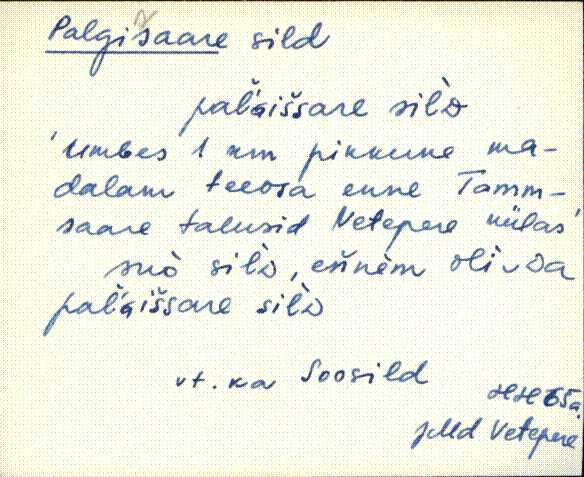 Palgišaare sild
pal̆gišsare silD
'Umbes 1 km pikkune ma-
dalam teeosa enne Tamm-
saare talusid Vetepere külas'
suò silD, eńnèm oli
pal̆gišsare silD
vt. ka Soosild
HH 65a.
JMd Vetepere